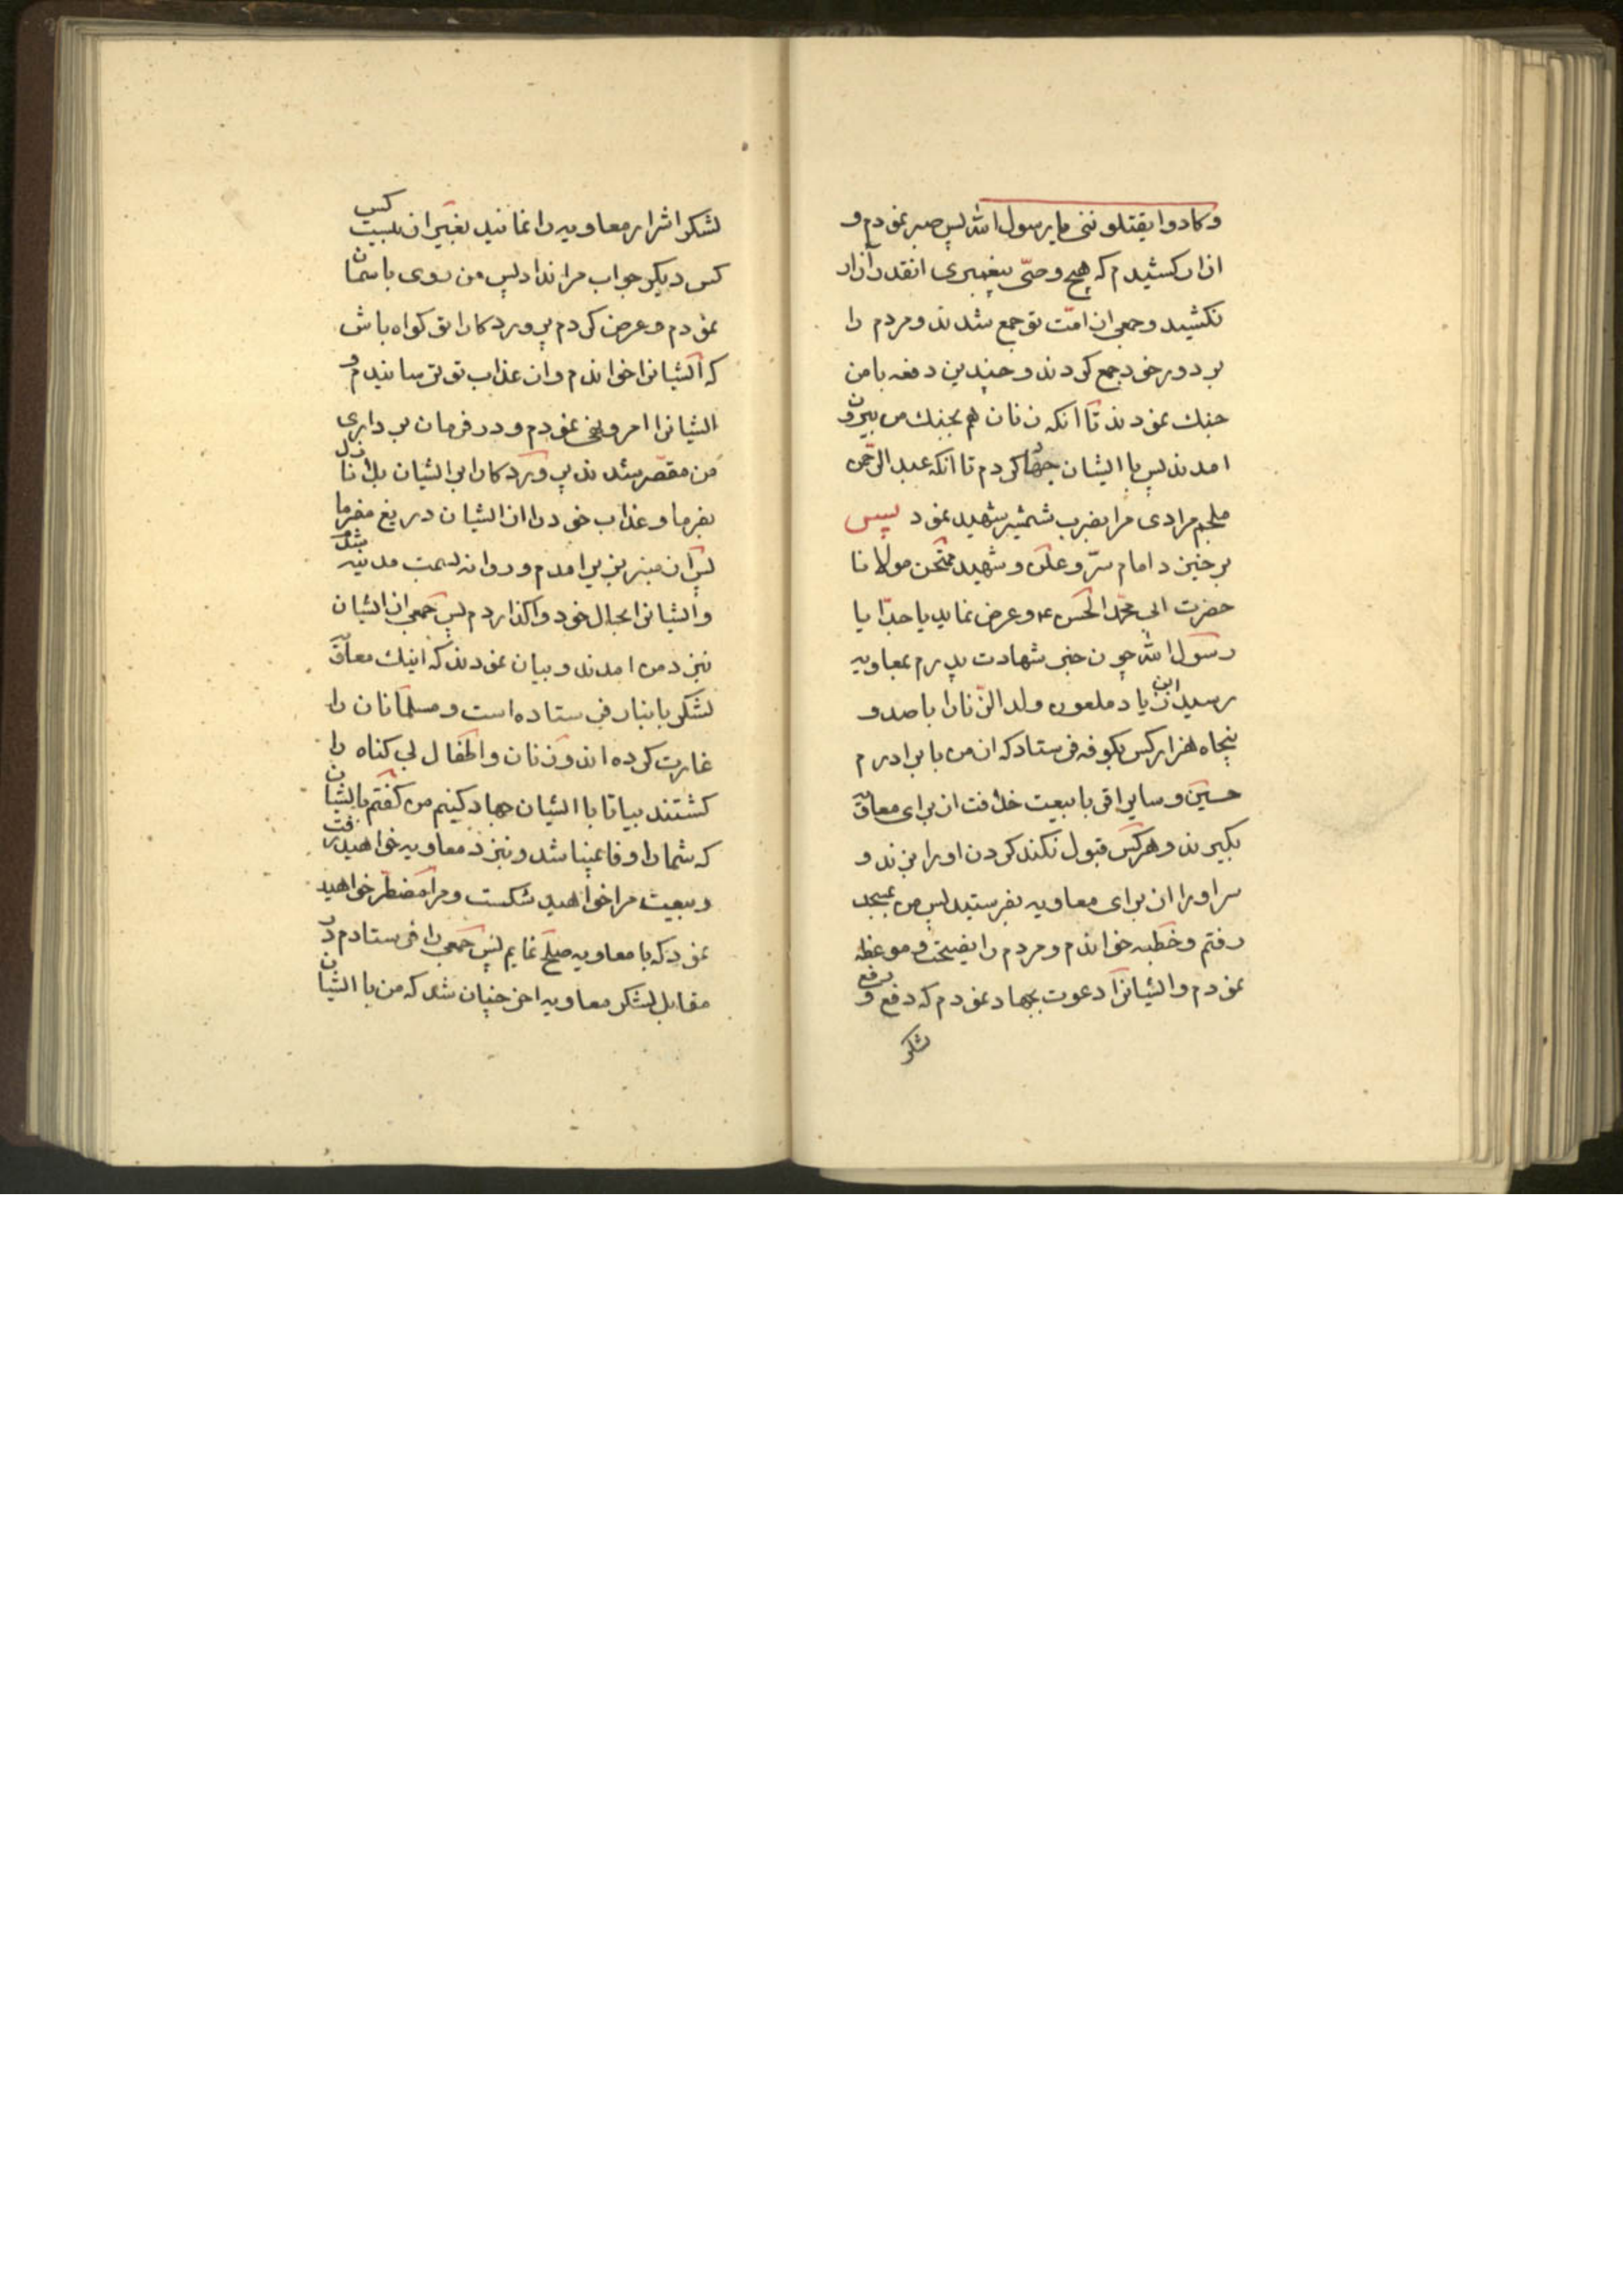 وکادوا یقتلوننی یا رسول الله پس صبر نمودم و
ازار کشیدم که هیچ وصیّ پیغمبری انقدر آزار
نکشید و جمعی از امّت تو جمع شدند و مردم را
بر دور خود جمع کردند و چندین دفعه با من
جنك نمودند تا انکه زنان هم بجنك من بیرون
امدند پس با ایشان جهاد کردم تا انکه عبد الرحمن
ملجم مرادی مرا بضرب شمشیر شهید نمود پس
برخیزد امام سرّ و علن و شهید ممتحن مولانا
حضرت ابی محمّد الحسن ع و عرض نماید یا جدّا یا
رسول الله چون خبر شهادت پدرم بمعاویه
رسید ابن زیاد ملعون ولد الزّنا را با صد و
پنجاه هزار کس بکوفه فرستاد که از من با برادرم
حسین و سایر اقربا بیعت خلافت از برای معاویه
بکیرند و هر کس قبول نکند کردن او را بزند و
سر او را از برای معاویه بفرستید پس من بمسجد
رفتم و خطبه خواندم و مردم را نصیحت و موعظه
نمودم و ایشانرا دعوت بجهاد نمودم که دفع و رفع
لشکر
لشکر اشرار معاویه را نمائید بغیر از بیست کس
کس دیکر جواب مرا نداد پس من روی باسمان
نمودم و عرض کردم پروردکارا تو کواه باش
که ایشانرا خواندم و از عذاب تو ترسانیدم و
ایشانرا امر و نهی نمودم و در فرمان برداری
من مقصّر شدند پروردکارا بر ایشان بلا نازل
بفرما و عذاب خود را از ایشان دریغ مفرما
پس از منبر بزیر امدم و روانه بسمت مدینه شدم
و ایشانرا بحال خود واکذاردم پس جمعی از ایشان
نیز نزد من امدند و بیان نمودند که اینك معاویه
لشکر بانبار فرستاده است و مسلمانان را
غارت کرده اند و زنان و اطفال بی کناه را
کشتند بیا تا با ایشان جهاد کنیم من کفتم بایشان
که شما را وفا نمیباشد و نزد معاویه خواهید رفت
و بیعت مرا خواهید شکست و مرا مضطر خواهید
نمود که با معاویه صلح نمایم پس جمعی را فرستادم در
مقابل لشکر معاویه اخر چنان شد که من با ایشان